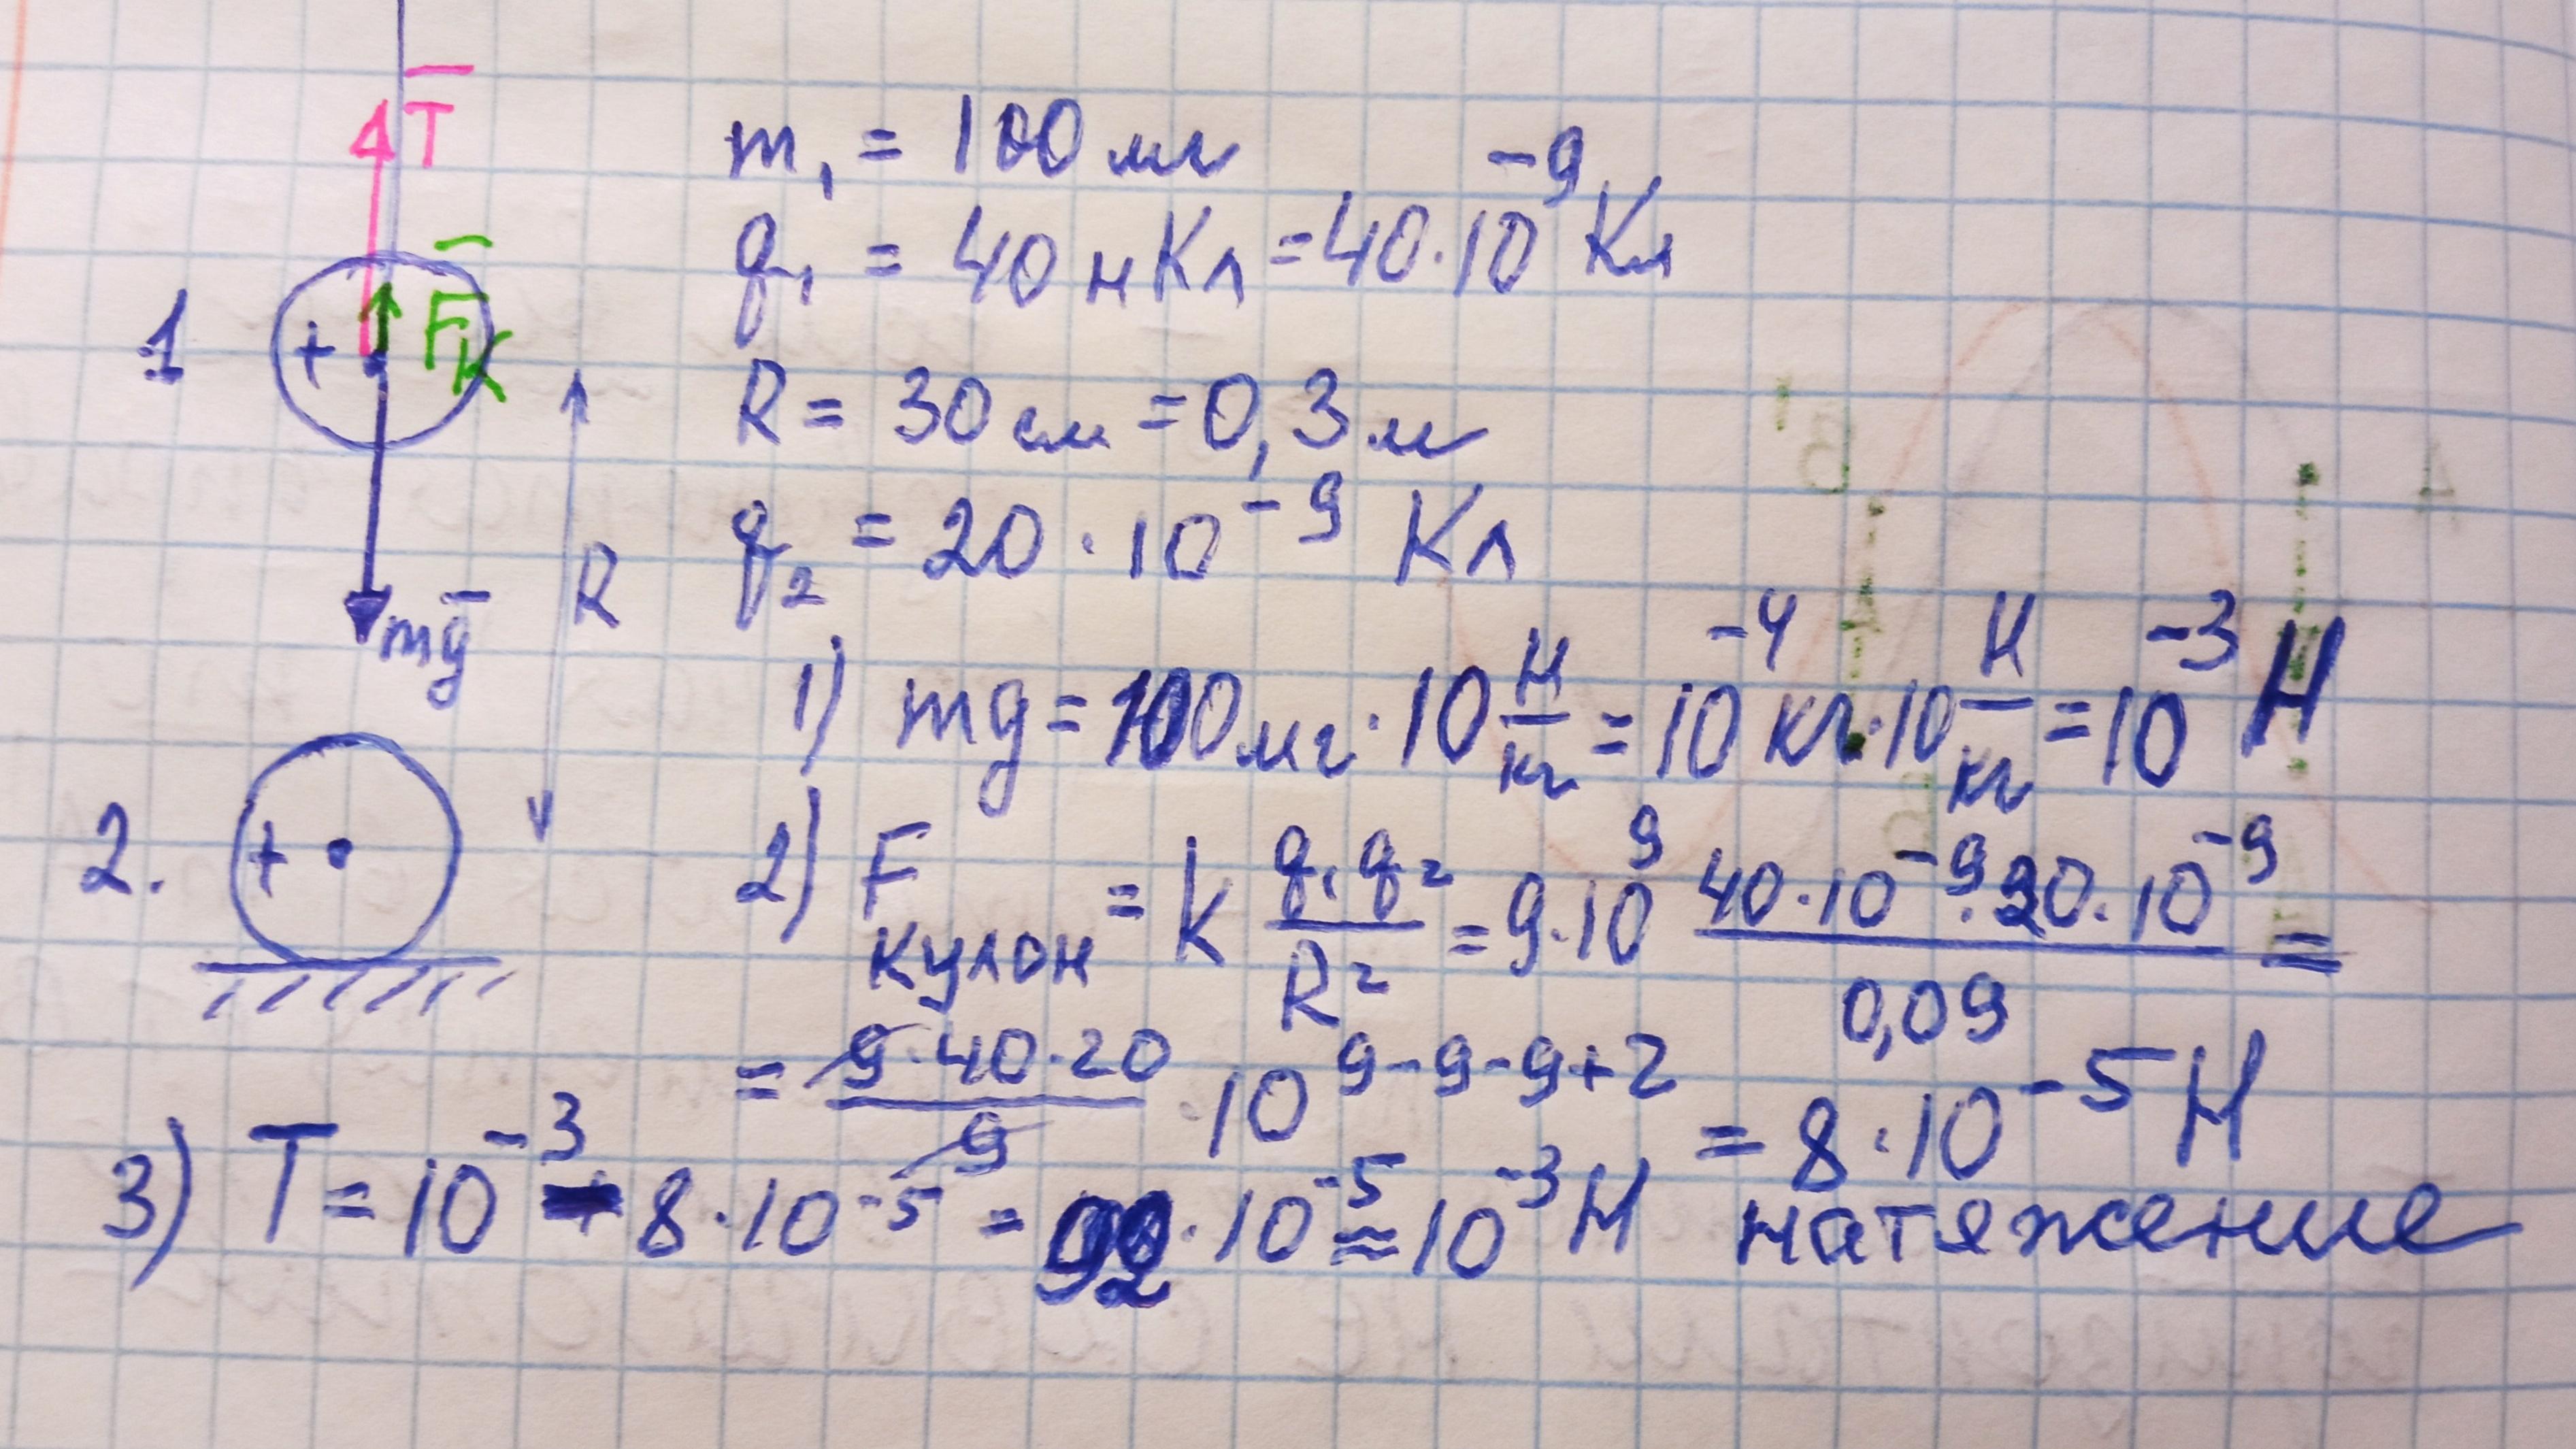 T̅
m₁ = 100 мг
q₁ = 40 нКл = 40·10⁻⁹ Кл
1
+
F̅к
R = 30 см = 0,3 м
q₂ = 20 · 10⁻⁹ Кл
R
mg̅
1) mg = 100 мг · 10 Н/кг = 10⁻⁴ кг · 10 Н/кг = 10⁻³ Н
2.
+
2) F кулон = k q₁q₂/R² = 9·10⁹ 40·10⁻⁹·20·10⁻⁹/0,09 =
= 9·40·20/9 · 10⁹⁻⁹⁻⁹⁺² = 8·10⁻⁵ Н
3) T = 10⁻³ - 8·10⁻⁵ = 92·10⁻⁵ ≈ 10⁻³ Н натяжение